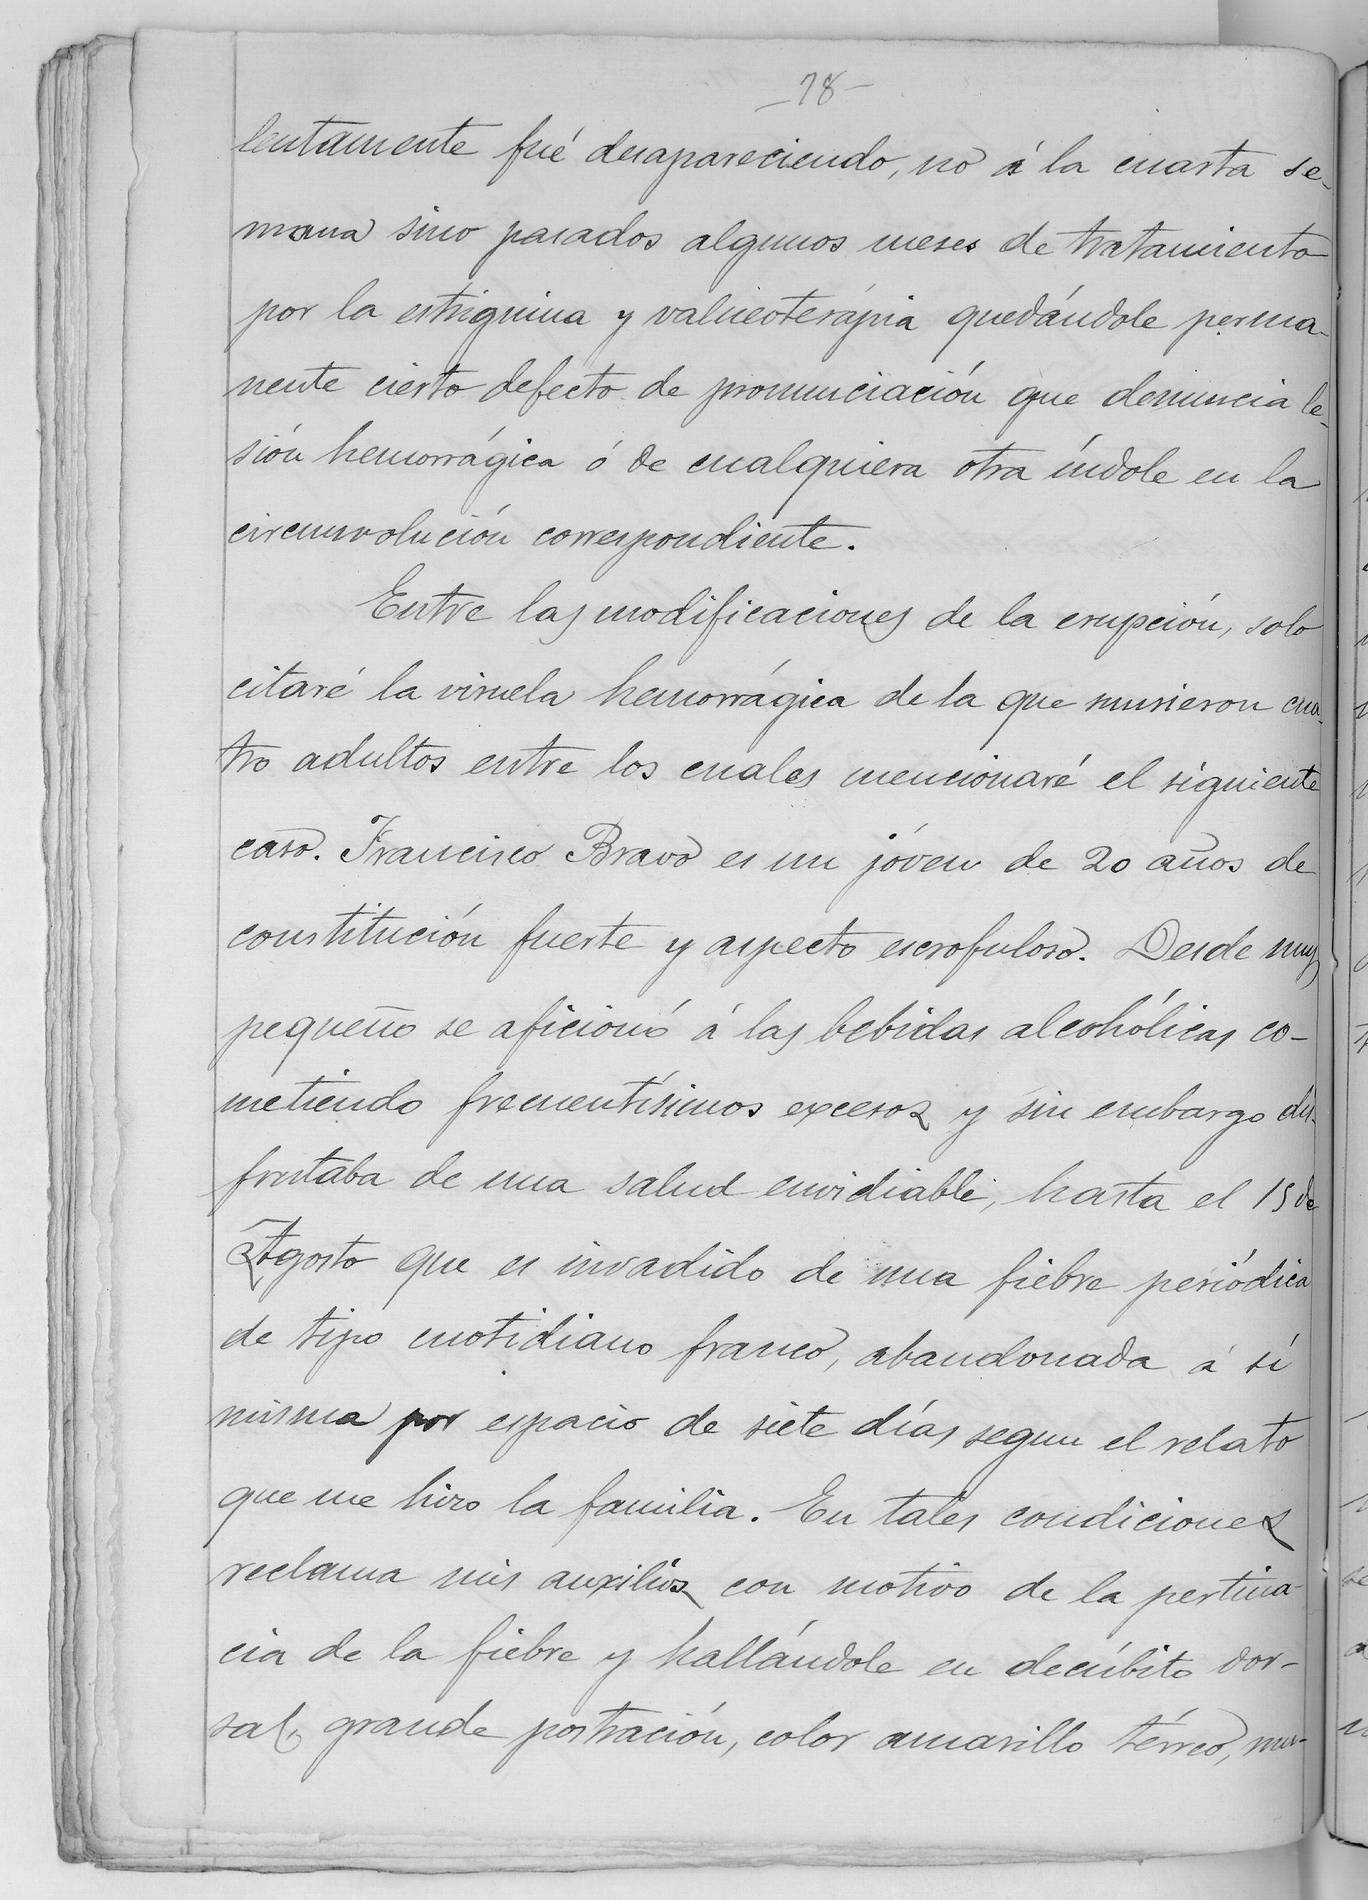 -78-
lentamente fué desapareciendo, no á la cuarta se-
mana sino pasados algunos meses de tratamiento
por la estriguina y valneoterápia quedándole perma-
nente cierto defecto de pronunciación que denuncia le-
sión hemorrágica ó de cualquiera otra índole en la
circunvolución correspondiente.
Entre las modificaciones de la erupción, solo
citaré la viruela hemorrágica de la que murieron cua-
tro adultos entre los cuales mencionaré el siguiente
caso. Francisco Bravo es un jóven de 20 años de
constitución fuerte y aspecto escrofuloso. Desde muy
pequeño se aficionó á las bebidas alcohólicas co-
metiendo frecuentísimos excesos y sin embargo dis-
frutaba de una salud envidiable, hasta el 15 de
Agosto que es invadido de una fiebre periódica
de tipo cuotidiano franco, abandonada á sí
misma por espacio de siete días segun el relato
que me hizo la familia. En tales condiciones
reclama mis auxilios con motivo de la pertina-
cia de la fiebre y hallándole en decúbito dor-
sal, grande postración, color amarillo térreo, mu-